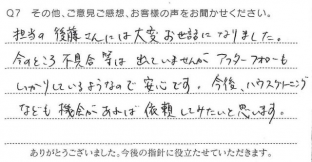 Q7 その他、ご意見ご感想、お客様の声をお聞かせください。
担当の後藤さんには大変お世話になりました。
今のところ不具合等は出ていませんがアフターフォローも
しっかりしているようなので安心です。今後、ハウスクリーニング
なども機会があれば依頼してみたいと思います。
ありがとうございました。今後の指針に役立たせていただきます。